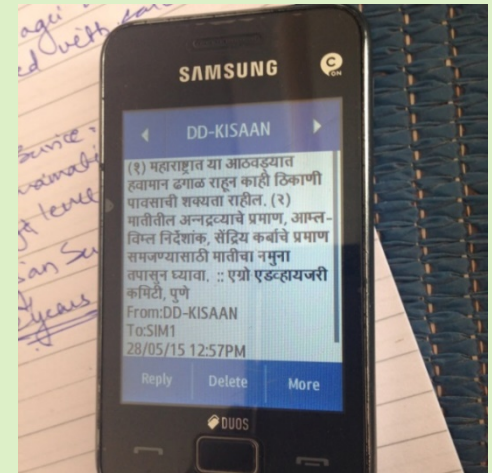 SAMSUNG
C
ON
DD-KISAAN
(१) महाराष्ट्रात या आठवड्यात
हवामान ढगाळ राहून काही ठिकाणी
पावसाची शक्यता राहील. (२)
मातीतील अन्नद्रव्याचे प्रमाण, आम्ल-
विम्ल निर्देशांक, सेंद्रिय कर्बाचे प्रमाण
समजण्यासाठी मातीचा नमुना
तपासून घ्यावा. :: एग्रो एडव्हायजरी
कमिटी, पुणे
From:DD-KISAAN
To:SIM1
28/05/15 12:57PM
Reply Delete More
DUOS
years